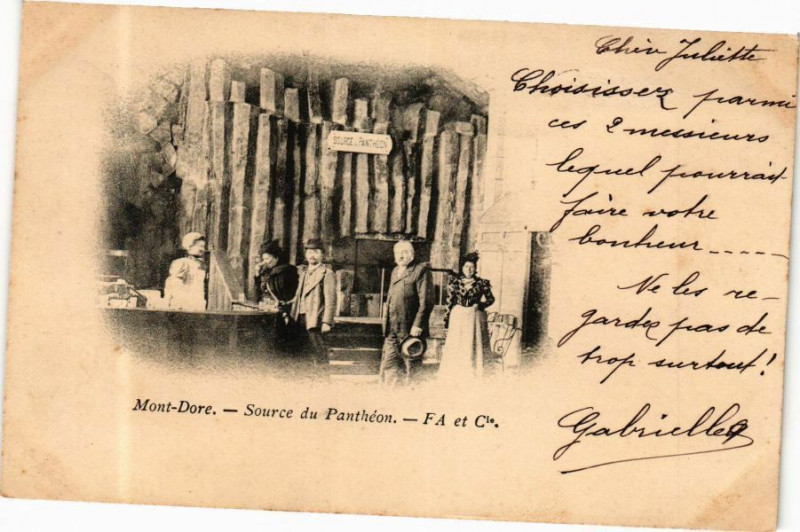 Chèr Juliette
Choisissez parmi
ces 2 messieurs
lequel pourrait
faire votre
bonheur-----
Ne les re-
gardez pas de
trop surtout!
Gabrielle
SOURCE du PANTHÉON
Mont-Dore. — Source du Panthéon. — FA et Cie.